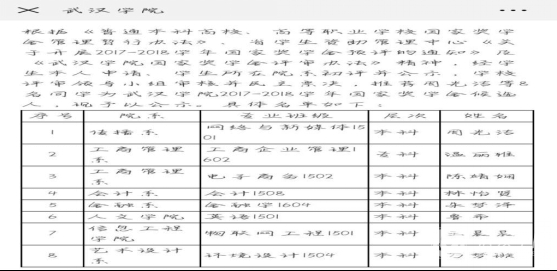 武汉学院
根据《普通本科高校、高等职业学校国家奖学
金管理暂行办法》、省学生资助管理中心《关
于开展2017-2018学年国家奖学金预评的通知》及
《武汉学院国家奖学金评审办法》精神,经学
生本人申请、学生所在院系初评并公示,学校
评审领导小组审核并报主席决,推荐周光洁等8
名同学为武汉学院2017-2018学年国家奖学金候选
人,现予以公示。具体名单如下:
序号 院系 专业班级 层次 姓名
1 传播系 网络与新媒体15
01 本科 周光洁
2 工商管理
系 工商企业管理1
602 专科 温丽雅
3 工商管理
系 电子商务1502 本科 陈婧娴
4 会计系 会计1508 本科 林怡贤
5 金融系 金融学1604 本科 朱梦泽
6 人文学院 英语1501 本科 鲁希
7 信息工程
学院 物联网工程1501 本科 晨晨
8 艺术设计
系 环境设计1504 本科 万梦